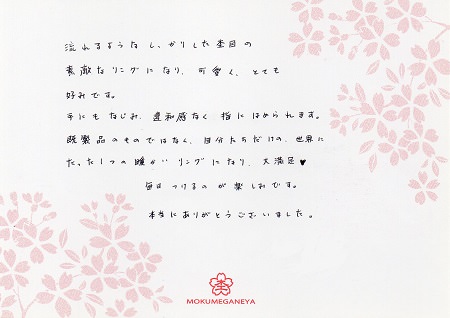 流れるようなしっかりした杢目の
素敵なリングになり、可愛く、とても
好みです。
手にもなじみ、違和感なく指にはめられます。
既製品のものではなく、自分たちだけの、世界に
たった1つの暖かいリングになり、大満足♥
毎日つけるのが楽しみです。
本当にありがとうございました。
MOKUMEGANEYA